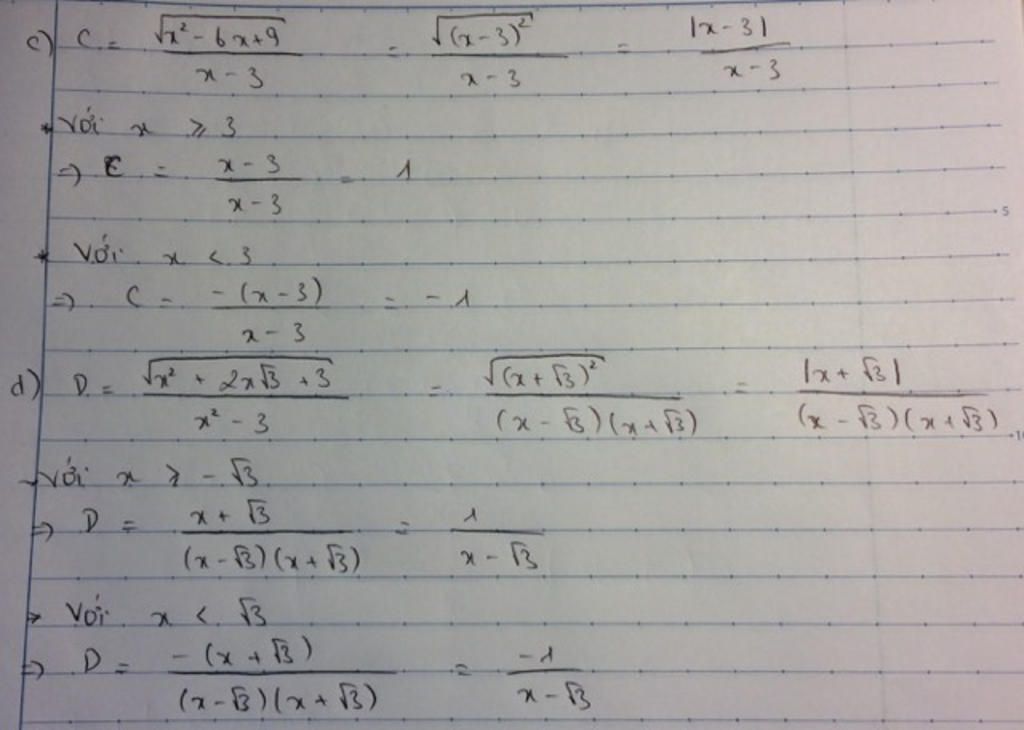 c) C = √(x² - 6x + 9) / (x - 3) = √((x - 3)²) / (x - 3) = |x - 3| / (x - 3)
* Với x ≥ 3
=> C = (x - 3) / (x - 3) = 1
* Với x < 3
=> C = -(x - 3) / (x - 3) = -1
5
d) D = √(x² + 2x√3 + 3) / (x² - 3) = √((x + √3)²) / ((x - √3)(x + √3)) = |x + √3| / ((x - √3)(x + √3))
10
Với x ≥ -√3
=> D = (x + √3) / ((x - √3)(x + √3)) = 1 / (x - √3)
* Với x < √3
=> D = -(x + √3) / ((x - √3)(x + √3)) = -1 / (x - √3)